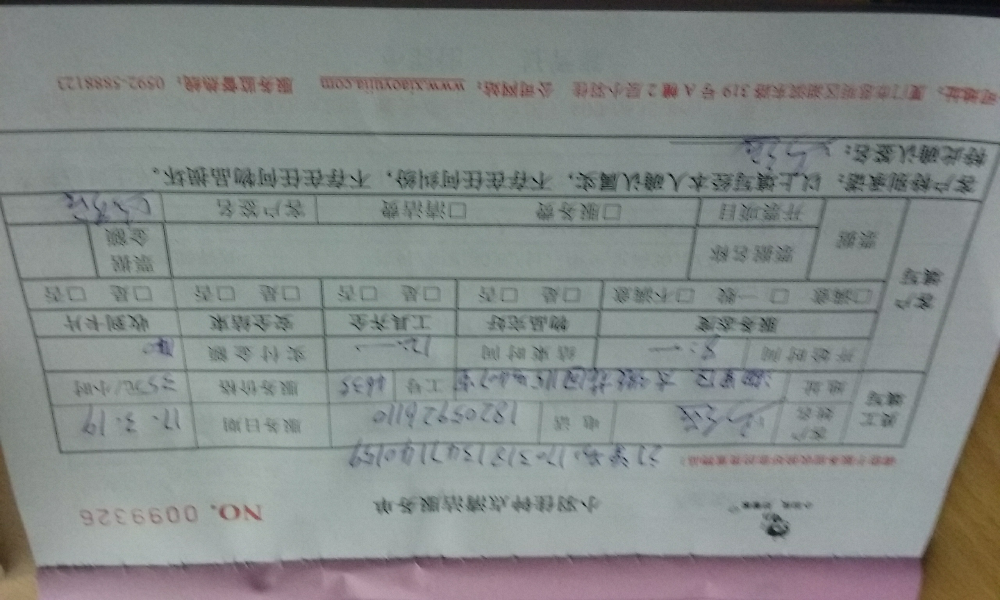 小羽佳钟点清洁服务单
NO. 0099326
订单号:170318134711940159
员工填写 客户姓名 电话 18205926110 服务日期 17.3.19
地址 工号 4635 服务价格 35元/小时
开始时间 8:一 结束时间 12:一 实付金额 140
客户填写 服务态度 物品完好 工具齐全 安全结束 收到卡片
□满意 □一般 □不满意 □是 □否 □是 □否 □是 □否 □是 □否
票据 票据名称 票据金额
开票项目 □服务费 □清洁费 客户签名
客户特别承诺:以上填写经本人确认,属实,不存在任何纠纷,不存在任何物品损坏。
特此确认签名:
司地址:厦门市思明区湖滨东路 319 号 A 幢 2 层小羽佳 公司网站:www.xiaoyujia.com 服务监督热线:0592-5888123